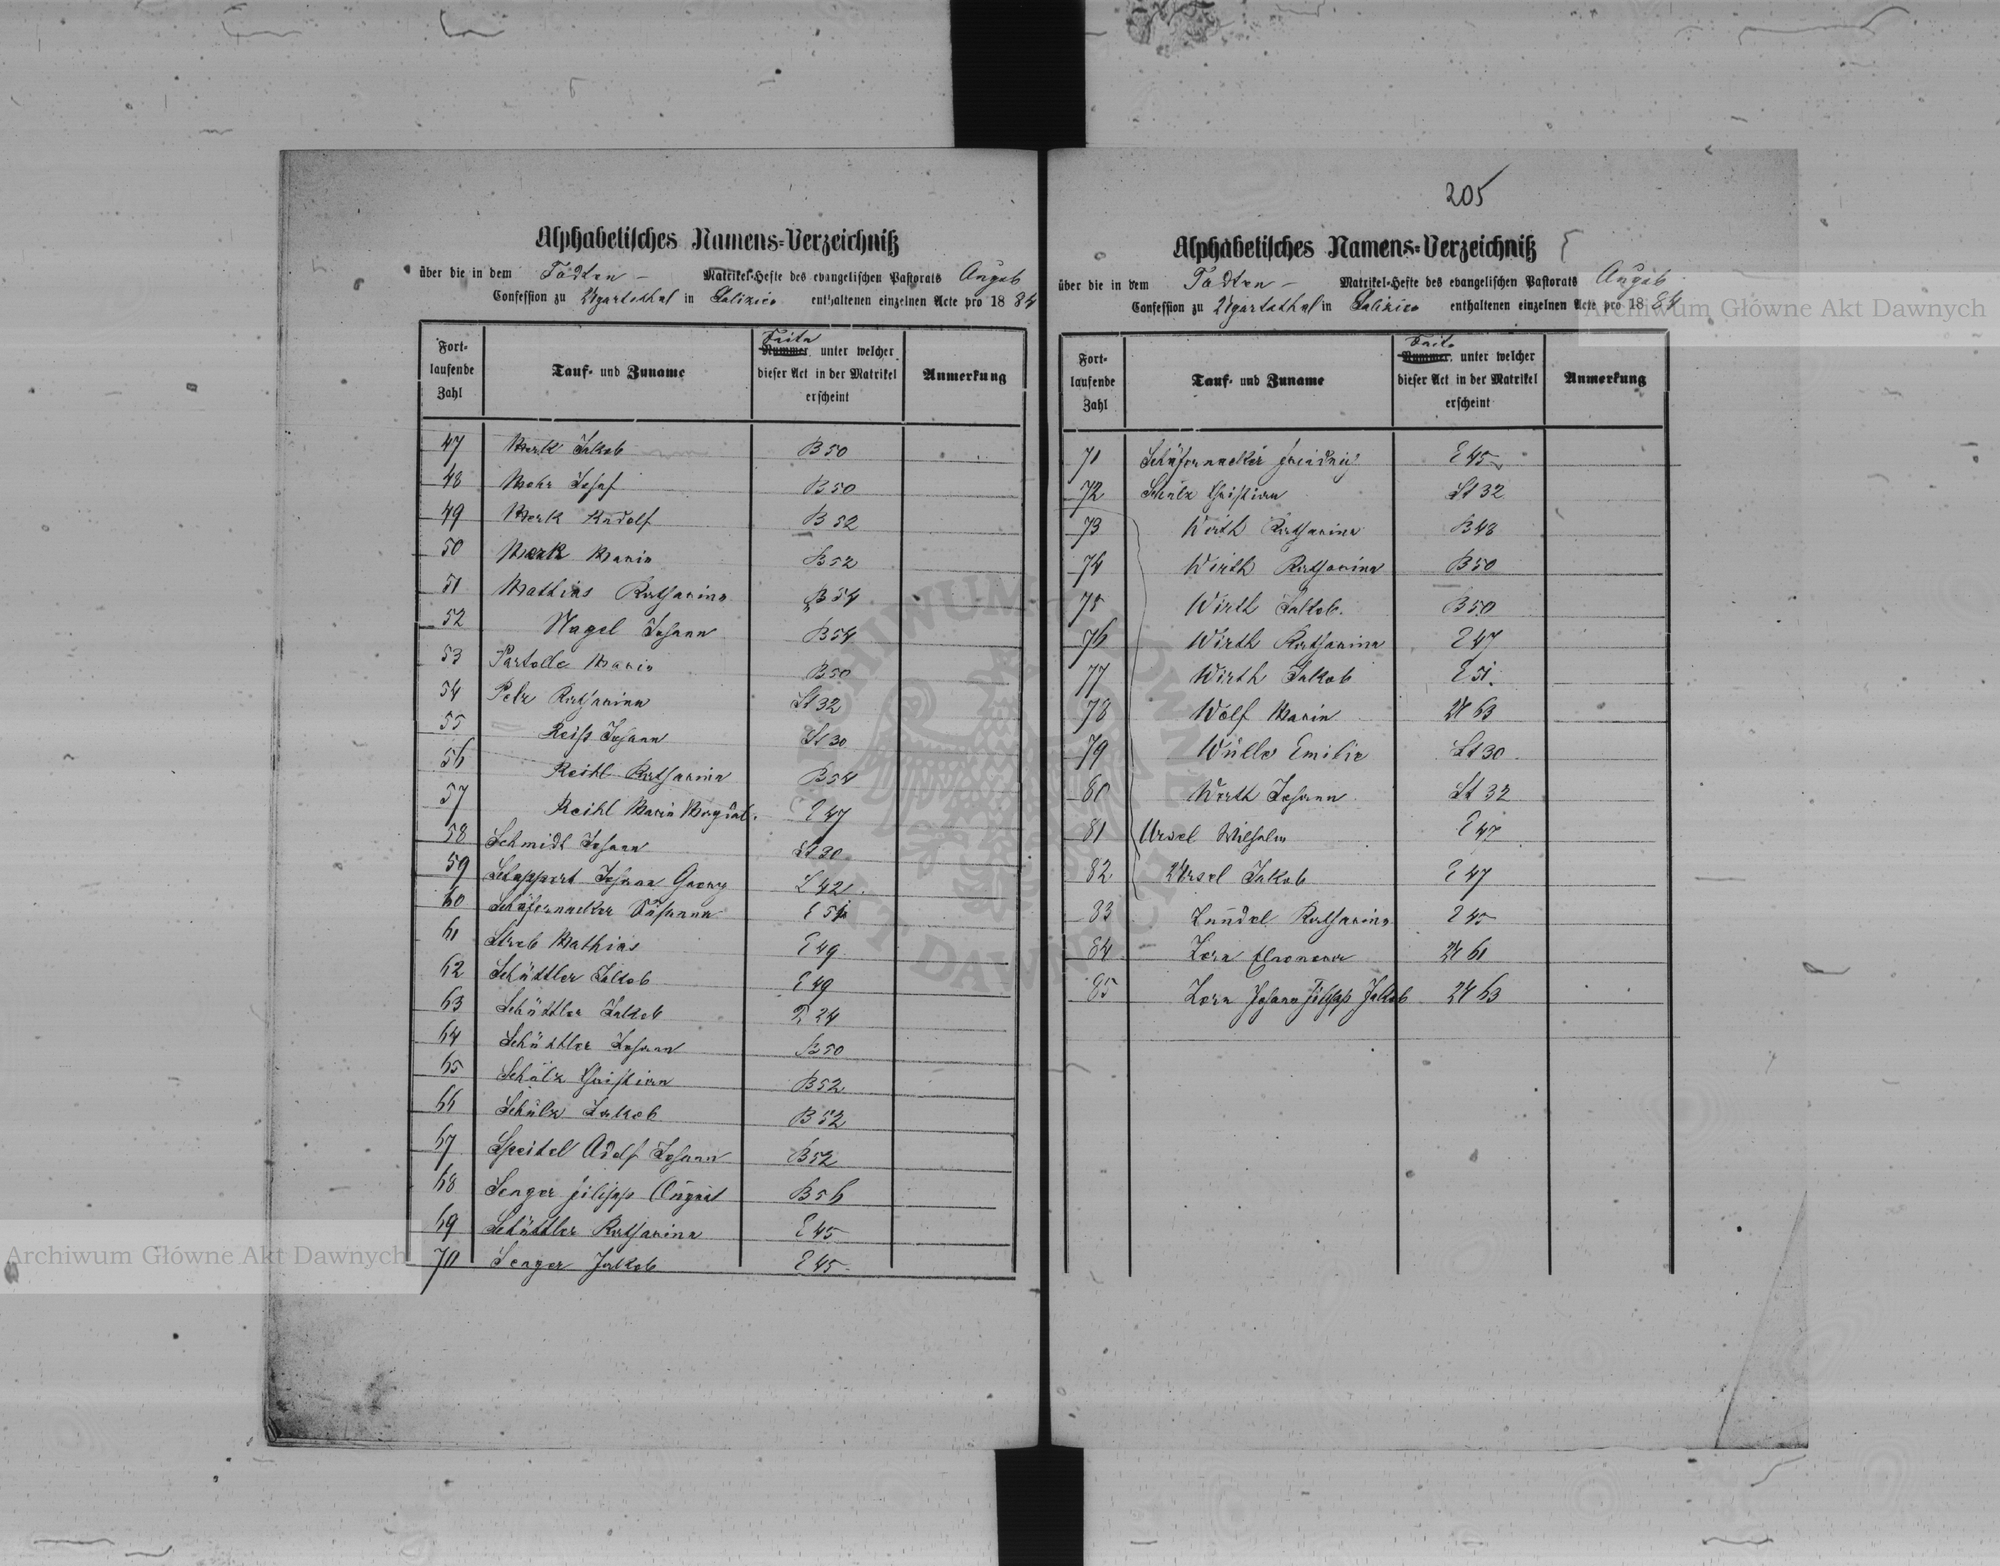 205
Alphabetisches Namens-Verzeichniß
über die in dem Todten – Matrikel-Hefte des evangelischen Pastorats Augsb
Confession zu Ugartsthal in Galizien enthaltenen einzelnen Acte pro 1884
Fort-
laufende
Zahl
Tauf- und Zuname
Seite
Nummer, unter welcher
dieser Act in der Matrikel
erscheint
Anmerkung
47 Merk Jakob B 50
48 Mohr Josef B 50
49 Merk Rudolf B 52
50 Merk Maria B 52
51 Mathias Katharina B 54
52 Nagel Johann B 54
53 Maria B 50
54 Petr Katharina St 32
55 Reiss Johann St 30
56 Reihl Katharina B 54
57 Reihl Maria E 47
58 Schmidt Johann St 30
59 Johann Georg L 42
60 Schäfernacker Susanna E 51
61 Mathias E 49
62 Schüttler Jakob E 49
63 Schüttler Jakob 24
64 Schüttler Johann B 50
65 Schulz Christian B 52
66 Schulz Jakob B 52
67 Speitel Adolf Johann B 52
68 Senger Filipp August B 56
69 Schüttler Katharina E 45
70 Senger Jakob E 45
Alphabetisches Namens-Verzeichniß
über die in dem Todten – Matrikel-Hefte des evangelischen Pastorats Augsb
Confession zu Ugartsthal in Galizien enthaltenen einzelnen Acte pro 1884
Fort-
laufende
Zahl
Tauf- und Zuname
Seite
Nummer, unter welcher
dieser Act in der Matrikel
erscheint
Anmerkung
71 Schäfernacker Friedrich E 45
72 Schulz Christian St 32
73 Wirth Katharina B 48
74 Wirth Katharina B 50
75 Wirth Jakob B 50
76 Wirth Katharina E 47
77 Wirth Jakob E 51
78 Wolf Maria U 63
79 Emilie St 30
80 Wirth Johann St 32
81 Ursel Wilhelm E 47
82 Ursel Jakob E 47
83 Katharina E 45
84 Zorn Eleonora U 61
85 Zorn Johann Filipp Jakob U 63
Archiwum Główne Akt Dawnych
Archiwum Główne Akt Dawnych
ARCHIWUM GŁÓWNE AKT DAWNYCH